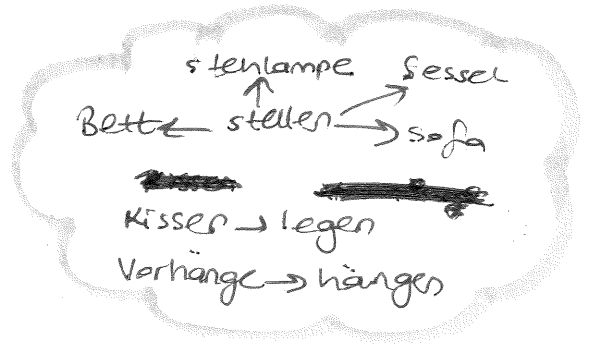 stehlampe Sessel
Bett ← stellen → sofa
Kissen → legen
Vorhänge → hängen